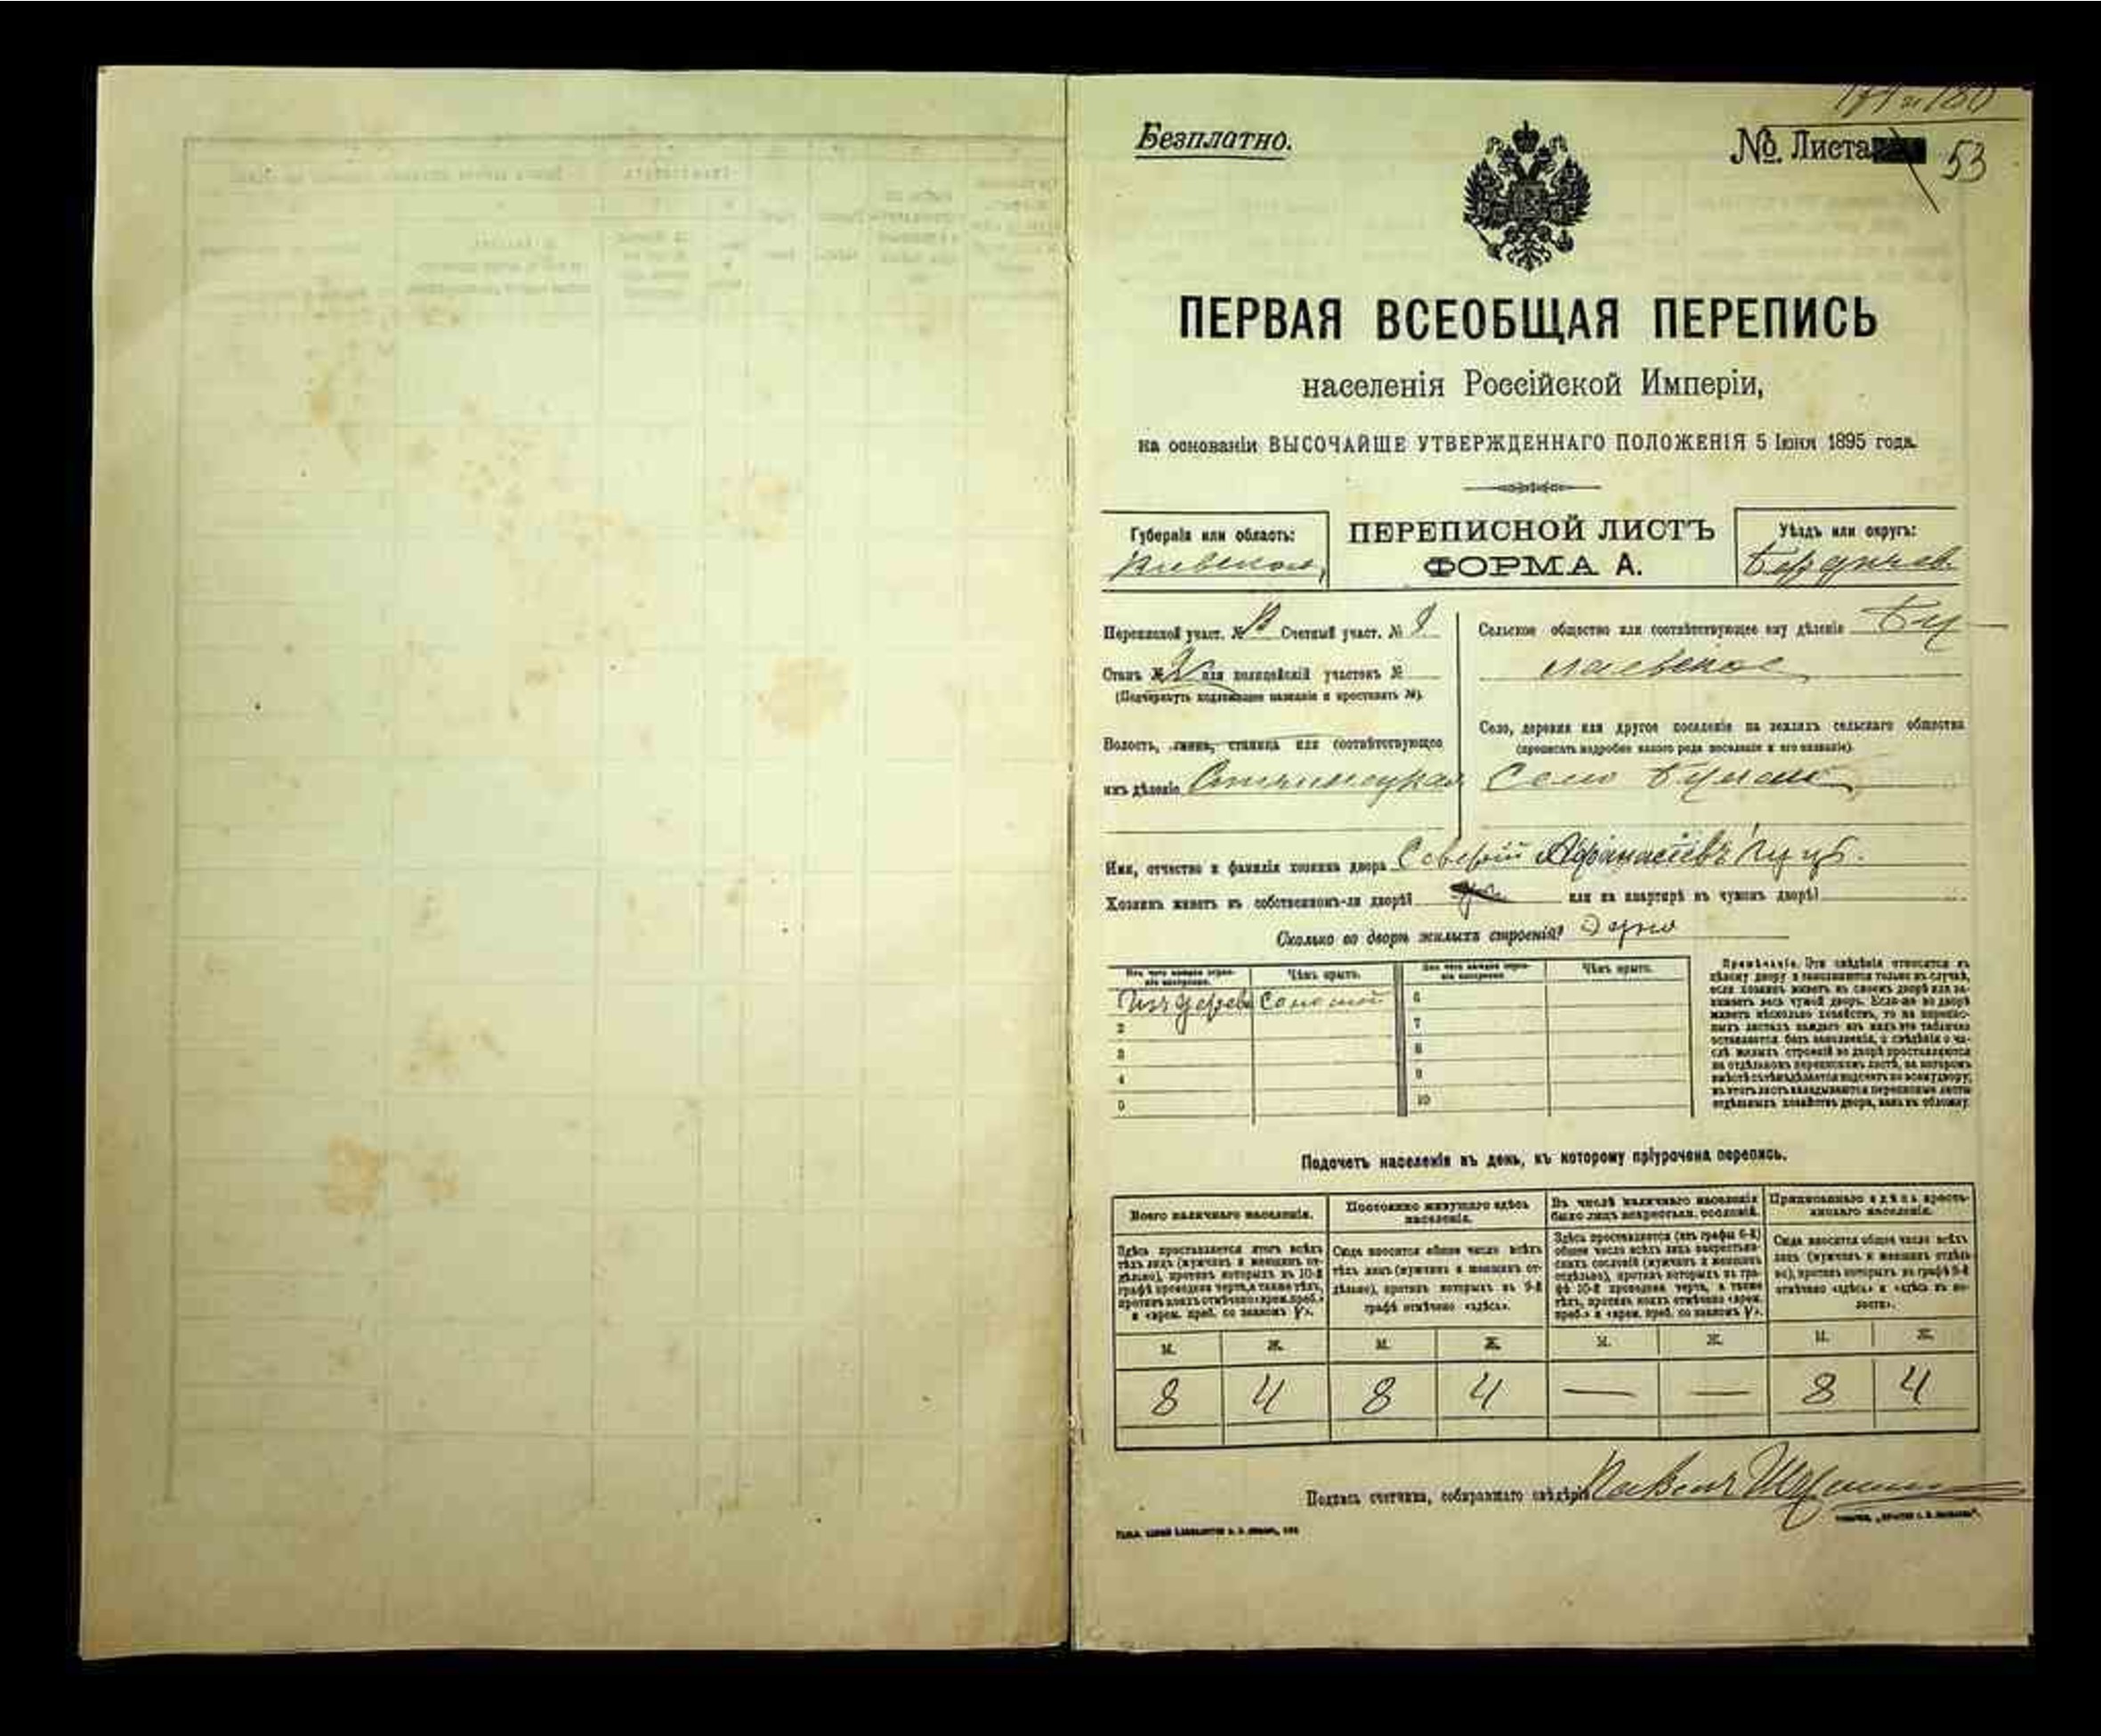 179 и 180
Безплатно.
№ Листа 53
ПЕРВАЯ ВСЕОБЩАЯ ПЕРЕПИСЬ
населенія Россійской Имперіи,
на основаніи ВЫСОЧАЙШЕ УТВЕРЖДЕННАГО ПОЛОЖЕНІЯ 5 Іюня 1895 года.
Губернія или область:
Кіевская
ПЕРЕПИСНОЙ ЛИСТЪ
ФОРМА А.
Уѣздъ или округъ:
Бердичев
Переписной участ. № Счетный участ. № 9
Станъ № 2 или полицейскій участокъ №
(Подчеркнуть подлежащее названіе и проставить №).
Волость, гмина, станица или соотвѣтствующее
имъ дѣленіе
Сельское общество или соотвѣтствующее ему дѣленіе
Село, деревня или другое поселеніе на земляхъ сельскаго общества
(прописать подробно какого рода поселеніе и его названіе).
Село
Имя, отчество и фамилія хозяина двора Северій Афанасіевъ
Хозяинъ живетъ въ собственномъ-ли дворѣ? или на квартирѣ въ чужомъ дворѣ?
Сколько во дворѣ жилыхъ строеній? Одно
Изъ чего каждое строеніе построено.
Чѣмъ крыто.
Изъ чего каждое строеніе построено.
Чѣмъ крыто.
Изъ дерева Соломой 6
2 7
3 8
4 9
5 10
Примѣчаніе. Эти свѣдѣнія относятся къ
цѣлому двору и заполняются только въ случаѣ,
если хозяинъ живетъ въ своемъ дворѣ или за-
нимаетъ весь чужой дворъ. Если-же во дворѣ
живетъ нѣсколько хозяйствъ, то на перепис-
ныхъ листахъ каждаго изъ нихъ эта табличка
оставляется безъ заполненія, а свѣдѣнія о чи-
слѣ жилыхъ строеній во дворѣ проставляются
на отдѣльномъ переписномъ листѣ, на которомъ
вмѣстѣ съ тѣмъ дѣлается подсчетъ по всему двору;
въ этотъ листъ вкладываются переписные листы
отдѣльныхъ хозяйствъ двора, какъ въ обложку.
Подсчетъ населенія въ день, къ которому пріурочена перепись.
Всего наличнаго населенія.
Постоянно живущаго здѣсь
населенія.
Въ числѣ наличнаго населенія
было лицъ некрестьян. сословій.
Приписаннаго здѣсь кресть-
янскаго населенія.
Здѣсь проставляется итогъ всѣхъ
тѣхъ лицъ (мужчинъ и женщинъ от-
дѣльно), противъ которыхъ въ 10-й
графѣ проведена черта, а также тѣхъ,
противъ коихъ отмѣчено «врем. преб.»
и «врем. преб. со знакомъ V».
Сюда вносится общее число всѣхъ
тѣхъ лицъ (мужчинъ и женщинъ от-
дѣльно), противъ которыхъ въ 9-й
графѣ отмѣчено «здѣсь».
Здѣсь проставляется (изъ графы 6-й)
общее число всѣхъ лицъ некрестьян-
скихъ сословій (мужчинъ и женщинъ
отдѣльно), противъ которыхъ въ гра-
фѣ 10-й проведена черта, а также
тѣхъ, противъ коихъ отмѣчено «врем.
преб.» и «врем. преб. со знакомъ V».
Сюда вносится общее число всѣхъ
лицъ (мужчинъ и женщинъ отдѣль-
но), противъ которыхъ въ графѣ 8-й
отмѣчено «здѣсь» и «здѣсь въ во-
лости».
М. Ж. М. Ж. М. Ж. М. Ж.
8 4 8 4 — — 8 4
Подпись счетчика, собиравшаго свѣдѣнія Павелъ